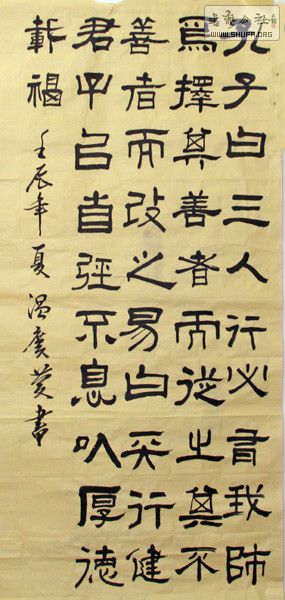 書法公社
WWW.SHUFA.ORG
孔子曰三人行必有我師
焉擇其善者而從之其不
善者而改之易曰天行健
君子以自强不息以厚德
載
壬辰年夏温廣書